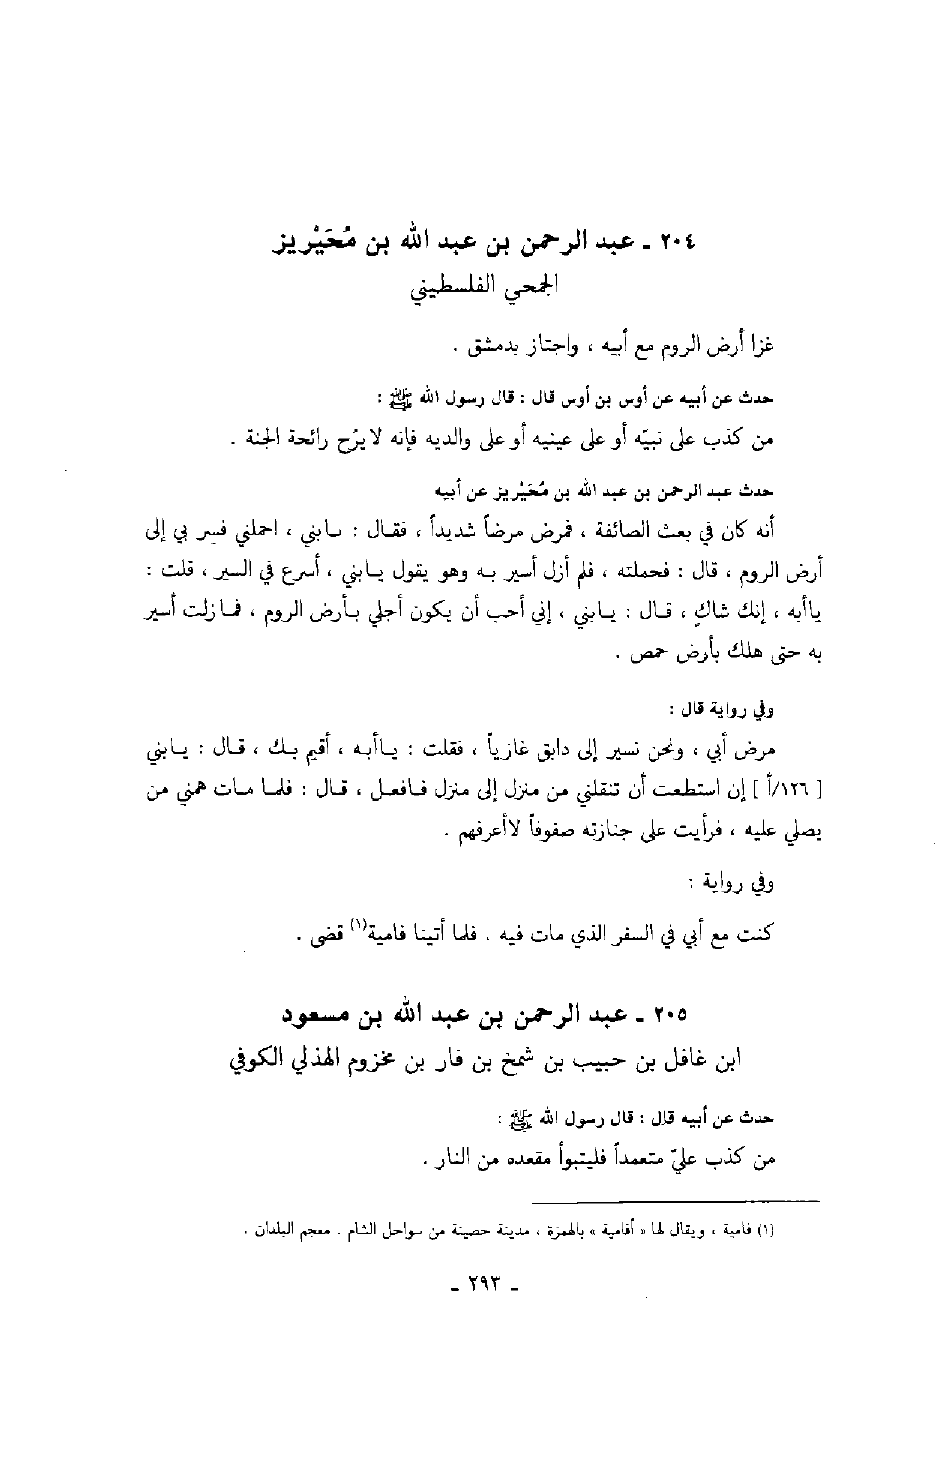 ٢٠٤ ـ عبد الرحمن بن عبد الله بن مُحَيْريز
الجمحي الفلسطيني
غزا أرض الروم مع أبيه ، واجتاز بدمشق .
حدث عن أبيه عن أوس بن أوس قال : قال رسول الله ﷺ :
من كذب على نبيّه أو على عينيه أو على والديه فإنه لا يَرُح رائحة الجنة .
حدث عبد الرحمن بن عبد الله بن مُحَيْريز عن أبيه
أنه كان في بعث الصائفة ، فمرض مرضاً شديداً ، فقال : يابني ، احملني فسر بي إلى
أرض الروم ، قال : فحملته ، فلم أزل أسير به وهو يقول يابني ، أسرع في السير ، قلت :
ياأبه ، إنك شاكٍ ، قال : يابني ، إني أحب أن يكون أجلي بأرض الروم ، فمازلت أسير
به حتى هلك بأرض حمص .
وفي رواية قال :
مرض أبي ، ونحن نسير إلى دابق غازياً ، فقلت : ياأبه ، أقيم بك ، قال : يابني
[ ١٢٦/أ ] إن استطعت أن تنقلني من منزل إلى منزل فافعل ، قال : فلما مات همني من
يصلي عليه ، فرأيت على جنازته صفوفاً لاأعرفهم .
وفي رواية :
كنت مع أبي في السفر الذي مات فيه ، فلما أتينا فامية(١) قضى .
٢٠٥ ـ عبد الرحمن بن عبد الله بن مسعود
ابن غافل بن حبيب بن شمخ بن فار بن مخزوم الهذلي الكوفي
حدث عن أبيه قال : قال رسول الله ﷺ :
من كذب عليّ متعمداً فليتبوأ مقعده من النار .
(١) فامية ، ويقال لها « أفامية » بالهمزة ، مدينة حصينة من سواحل الشام . معجم البلدان .
ـ ٢٩٣ ـ